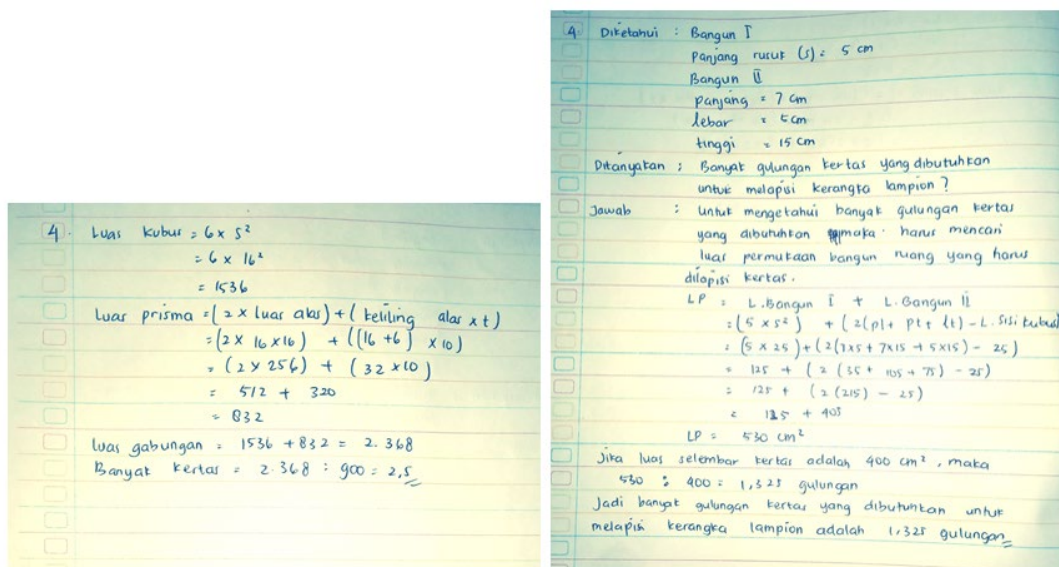 4. Luas kubus = 6 x s²
= 6 x 16²
= 1536
Luas prisma = (2 x luas alas) + (keliling alas x t)
= (2 x 16 x 16) + ((16 + 6) x 10)
= (2 x 256) + (32 x 10)
= 512 + 320
= 832
Luas gabungan = 1536 + 832 = 2.368
Banyak kertas = 2.368 : 900 = 2,5
4. Diketahui : Bangun I
Panjang rusuk (s) = 5 cm
Bangun II
Panjang = 7 cm
lebar = 5 cm
tinggi = 15 cm
Ditanyakan : Banyak gulungan kertas yang dibutuhkan
untuk melapisi kerangka lampion ?
Jawab : untuk mengetahui banyak gulungan kertas
yang dibutuhkan maka harus mencari
luas permukaan bangun ruang yang harus
dilapisi kertas.
LP = L. Bangun I + L. Bangun II
= (5 x s²) + (2(pl + pt + lt) - L. sisi kubus)
= (5 x 25) + (2(7x5 + 7x15 + 5x15) - 25)
= 125 + (2 (35 + 105 + 75) - 25)
= 125 + (2 (215) - 25)
= 125 + 405
LP = 530 cm²
Jika luas selembar kertas adalah 400 cm², maka
530 : 400 = 1,325 gulungan
Jadi banyak gulungan kertas yang dibutuhkan untuk
melapisi kerangka lampion adalah 1,325 gulungan